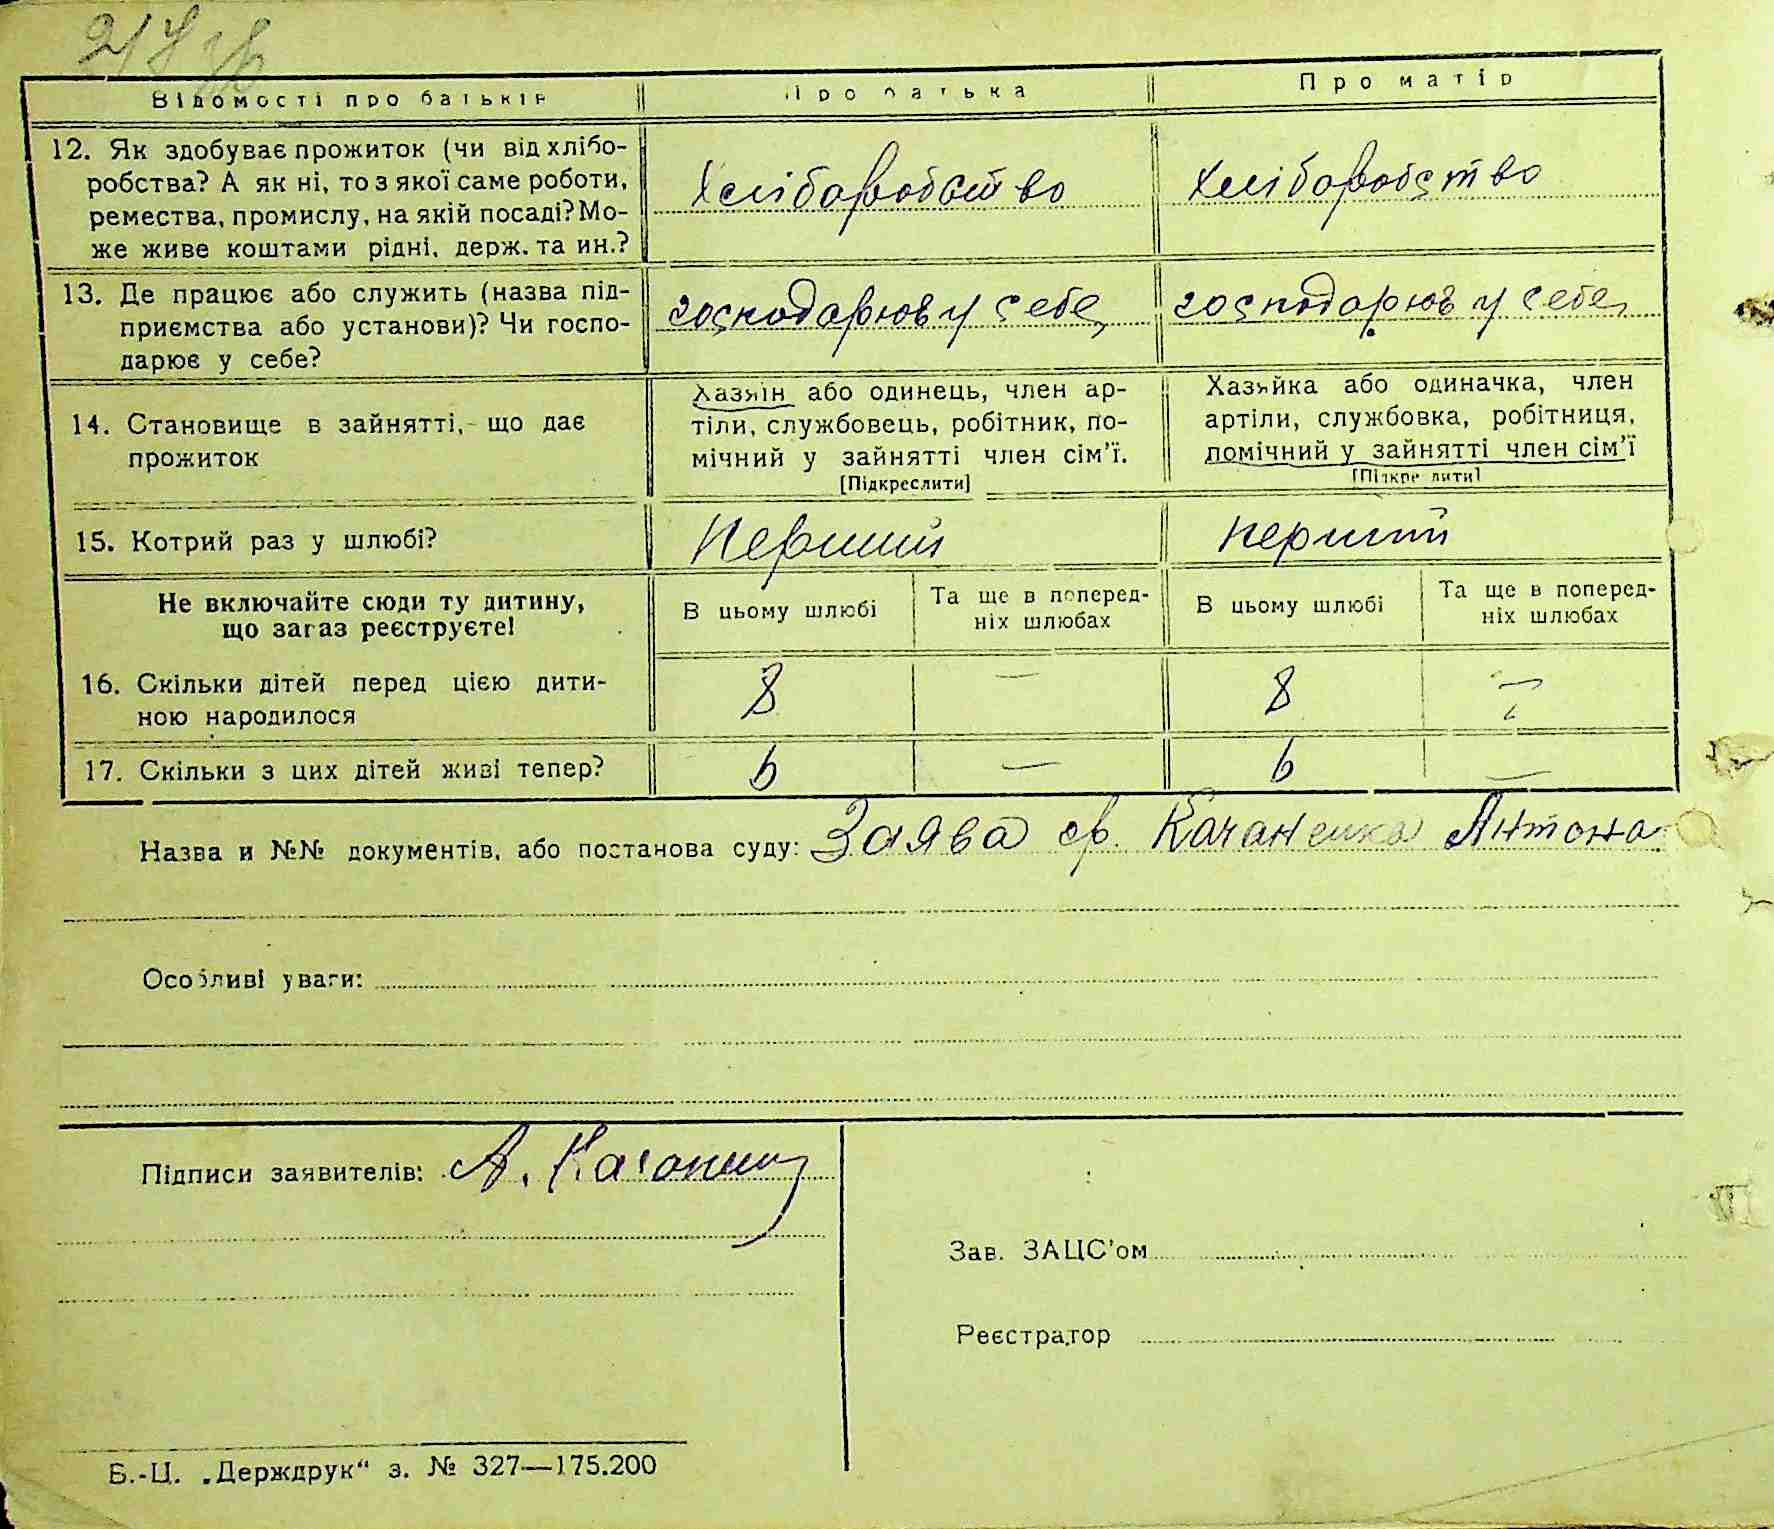 Відомості про батьків Про батька Про матір
12. Як здобуває прожиток (чи від хлібо-
робства? А як ні, то з якої саме роботи,
ремества, промислу, на якій посаді? Мо-
же живе коштами рідні, держ. та ин.?
Хліборобство Хліборобство
13. Де працює або служить (назва під-
приємства або установи)? Чи госпо-
дарює у себе?
господарюв у себе господарюв у себе
14. Становище в зайнятті, що дає
прожиток
Хазяїн або одинець, член ар-
тіли, службовець, робітник, по-
мічний у зайнятті член сім'ї.
[Підкреслити]
Хазяйка або одиначка, член
артіли, службовка, робітниця,
помічний у зайнятті член сім'ї
[Підкреслити]
15. Котрий раз у шлюбі? Перший перший
Не включайте сюди ту дитину,
що загаз реєструєте!
В цьому шлюбі Та ще в поперед-
ніх шлюбах
В цьому шлюбі Та ще в поперед-
ніх шлюбах
16. Скільки дітей перед цією дити-
ною народилося
8 — 8 —
17. Скільки з цих дітей живі тепер? 6 — 6 —
Назва и №№ документів, або постанова суду: Заява гр. Качаненка Антона
Особливі уваги:
Підписи заявителів: А.
Зав. ЗАЦС'ом
Реєстратор
Б.-Ц. „Держдрук“ з. № 327—175.200